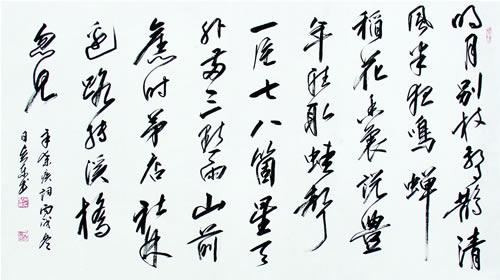 明月别枝驚鵲清
風半夜鳴蟬
稻花香裏說豐
年聽取蛙聲
一片七八箇星天
外兩三點雨山前
舊時茅店社林
邊路轉溪橋
忽見
辛棄疾詞丙戌冬